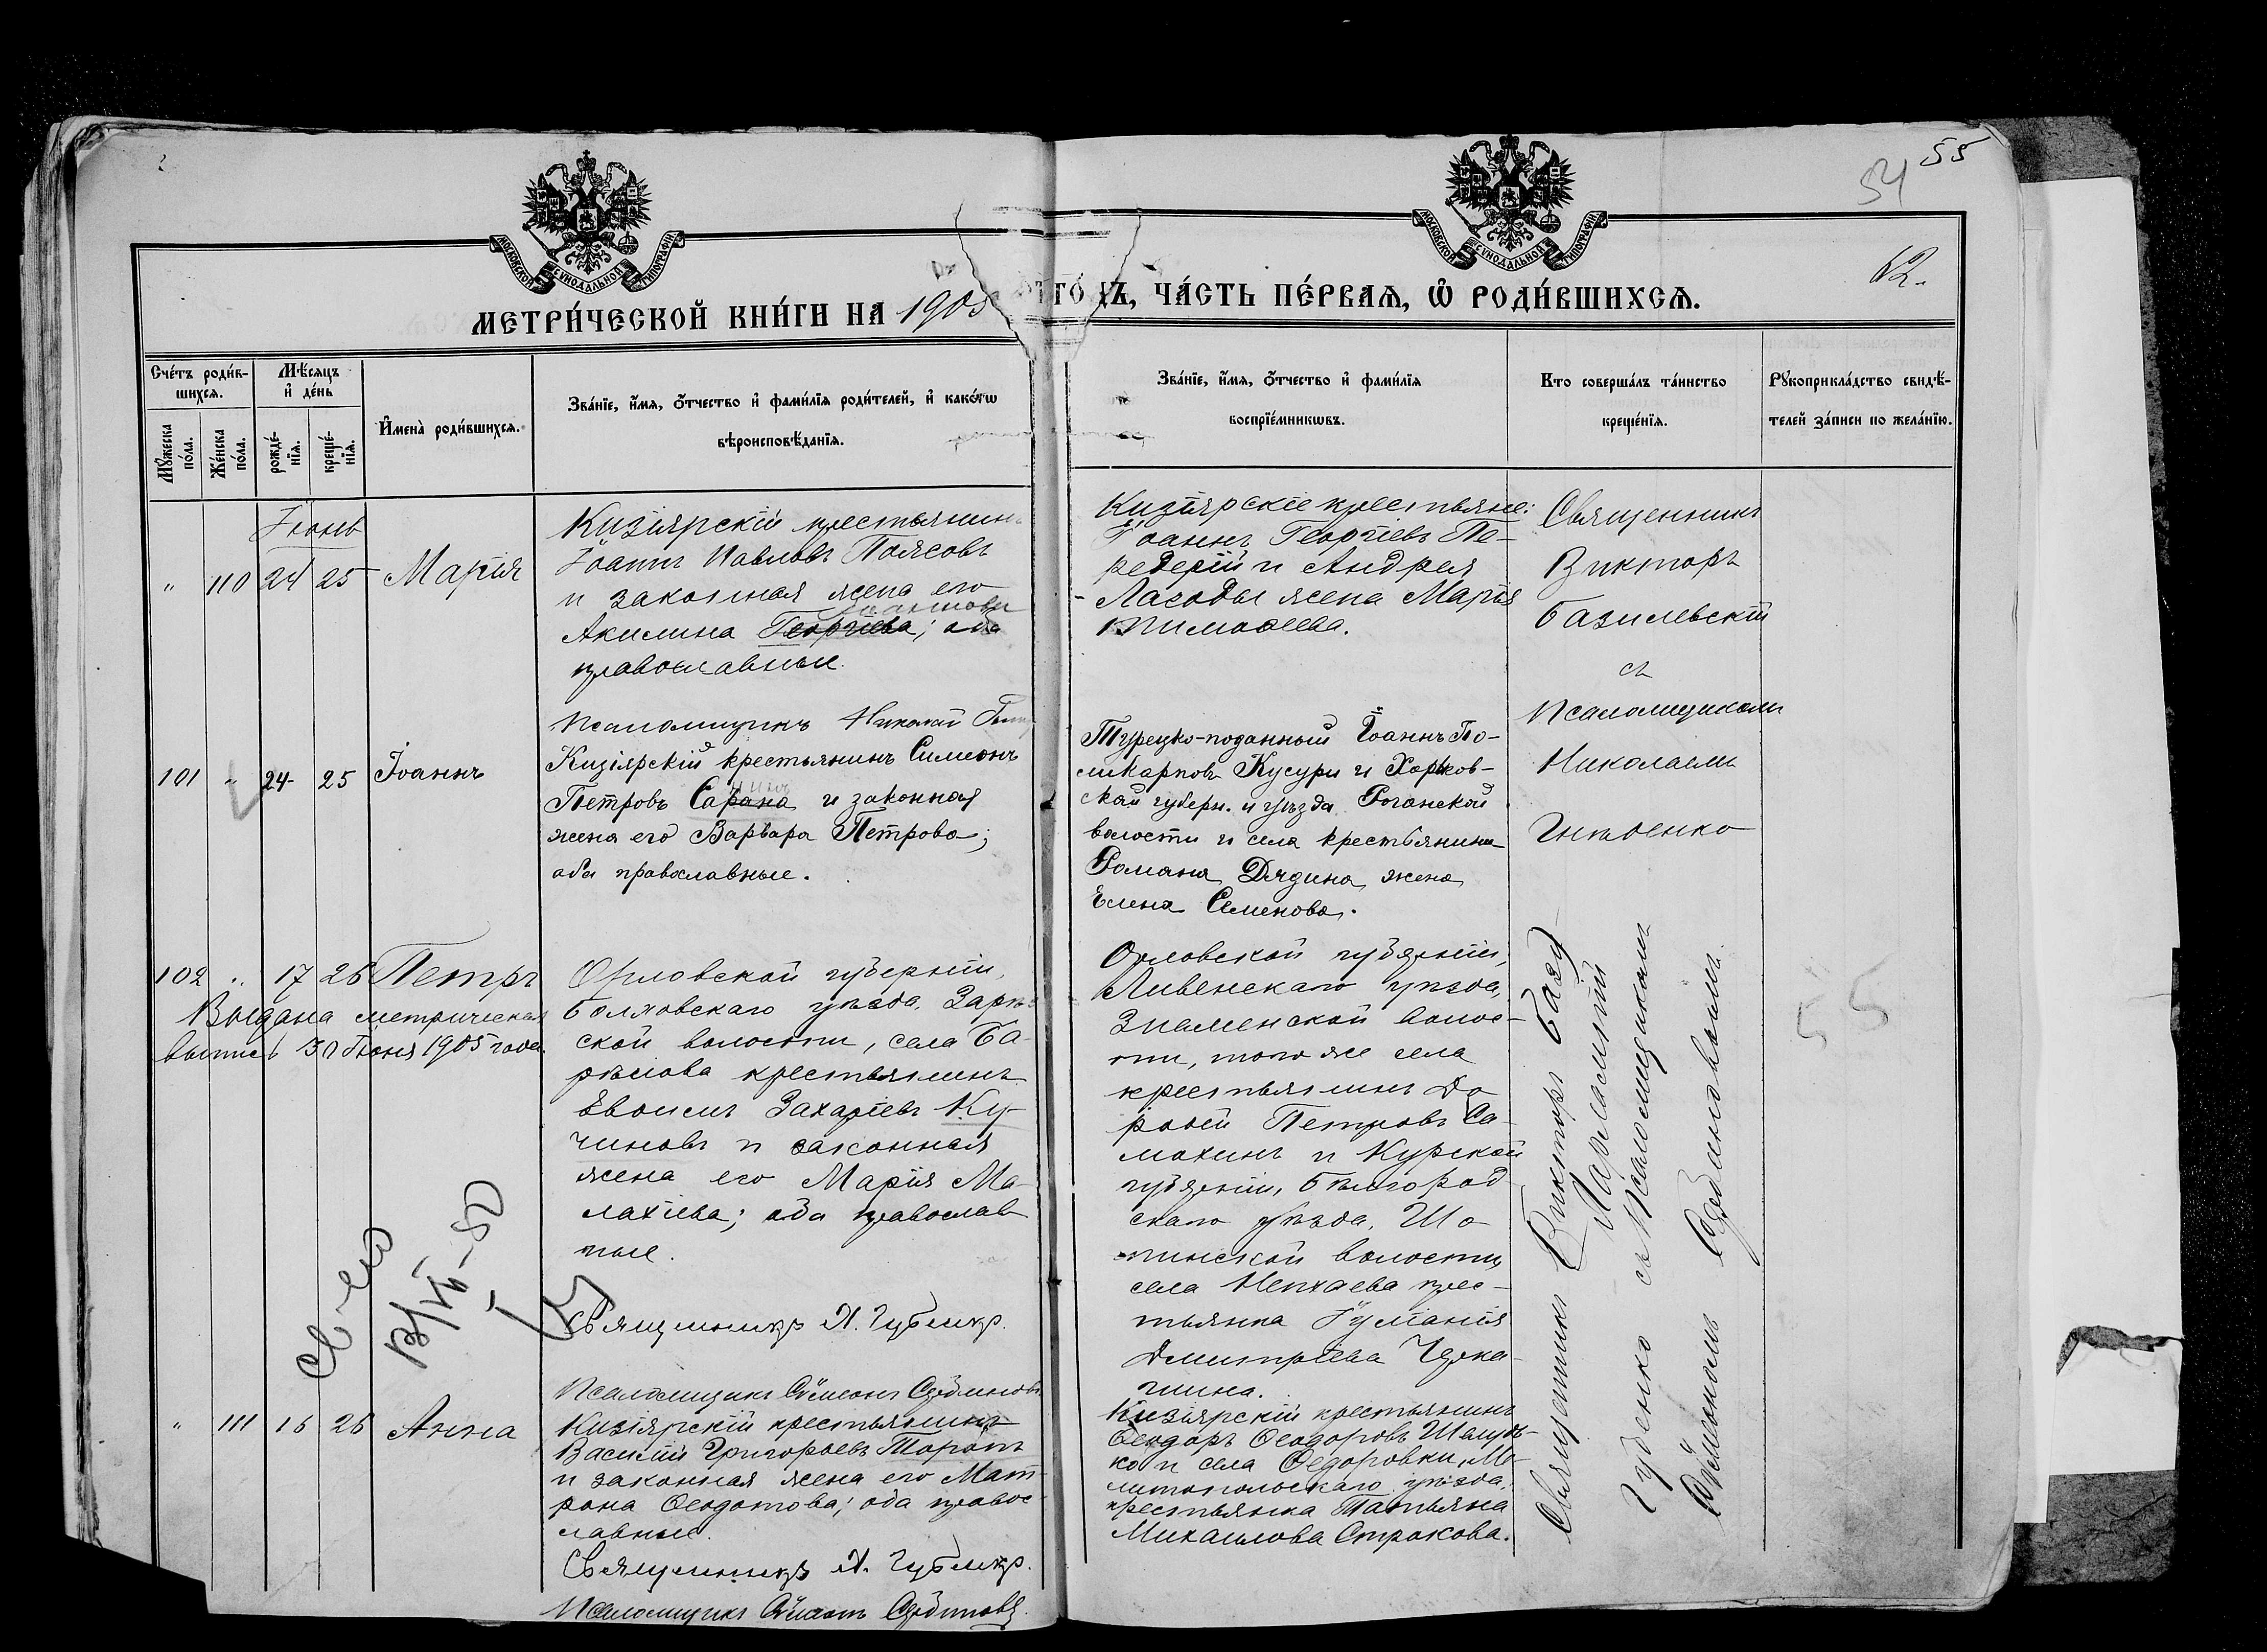 55
54
62.
МОСКОВСКОЙ СѴНОДАЛЬНОЙ ТИПОГРАФІИ.
МОСКОВСКОЙ СѴНОДАЛЬНОЙ ТИПОГРАФІИ.
МЕТРИ́ЧЕСКОЙ КНИ́ГИ НА 1905
ГО́ДЪ, ЧА́СТЬ ПЕ́РВАЯ, Ѡ РОДИ́ВШИХСЯ.
Сче́тъ роди́в-
шихся.
Мѣ́сяцъ
и де́нь
Му́жеска
по́ла.
Же́нска
по́ла.
рожде́-
нїя.
креще́-
нїя.
И́мена̀ роди́вшихся.
Зва́нїе, и́мя, ѻ҆́тчество и҆ фами́лїя роди́телей, и҆ како́гѡ
вѣроисповѣ́данїя.
Зва́нїе, и́мя, ѻ҆́тчество и҆ фами́лїя
воспрїе́мникѡвъ.
Кто соверша́лъ та́инство
креще́нїя.
Рꙋкоприкла́дство свидѣ́-
телей за́писи по жела́нїю.
Іюнь
" 110 24 25 Марія
Кизіярскій крестьянинъ
Іоаннъ Павловъ Поясовъ
и законная жена его
Іоаннова
Акилина Георгіева; оба
православные.
Кизіярскіе крестьяне:
Іоаннъ Георгіевъ Пе-
редерій и Андрея
Лагоды жена Марія
Тимоѳеева.
Священникъ
Викторъ
Базилевскій
съ
Псаломщикомъ
Николаемъ
Гнѣденко
Псаломщикъ Николай
101 " 24 25 Іоаннъ
Кизіярскій крестьянинъ Симеонъ
Петровъ Сарана и законная
жена его Варвара Петрова;
оба православные.
Турецко-поданный Іоаннъ По-
ликарповъ Кусури и Харьков-
ской губерн. и уѣзда Роганской
волости и села крестьянина
Романа Дядина жена
Елена Семенова.
102 " 17 26 Петръ
Выдана метрическая
выпись 30 Іюня 1905 года.
Орловской губерніи,
Болховскаго уѣзда,
ской волости, села Ба-
крестьянинъ
Захаріевъ Ку-
чиновъ и законная
жена его Марія Ма-
лахіева; оба православ-
ные.
Священникъ
Орловской губерніи,
Ливенскаго уѣзда,
Знаменской волос-
ти, того же села
крестьянинъ До-
роѳей Петровъ Са-
мохинъ и Курской
губерніи, Бѣлгород-
скаго уѣзда, Шо-
пинской волости,
села Непхаева крес-
тьянка Іуліанія
Дмитріева
Священникъ Викторъ
съ Псаломщикомъ
Симеономъ
55
Псаломщикъ Симеонъ
" 111 16 26 Анна
Кизіярскій крестьянинъ
Василій Григорьевъ Торопъ
и законная жена его Мат-
рона Ѳеодотова; оба правос-
лавные.
Священникъ
Псаломщикъ Симеонъ
Кизіярскій крестьянинъ
Ѳеодоръ Ѳеодоровъ Шалудь-
ко и села Ѳедоровки, Ме-
литопольскаго уѣзда,
крестьянка Татьяна
Михаилова Стракова.